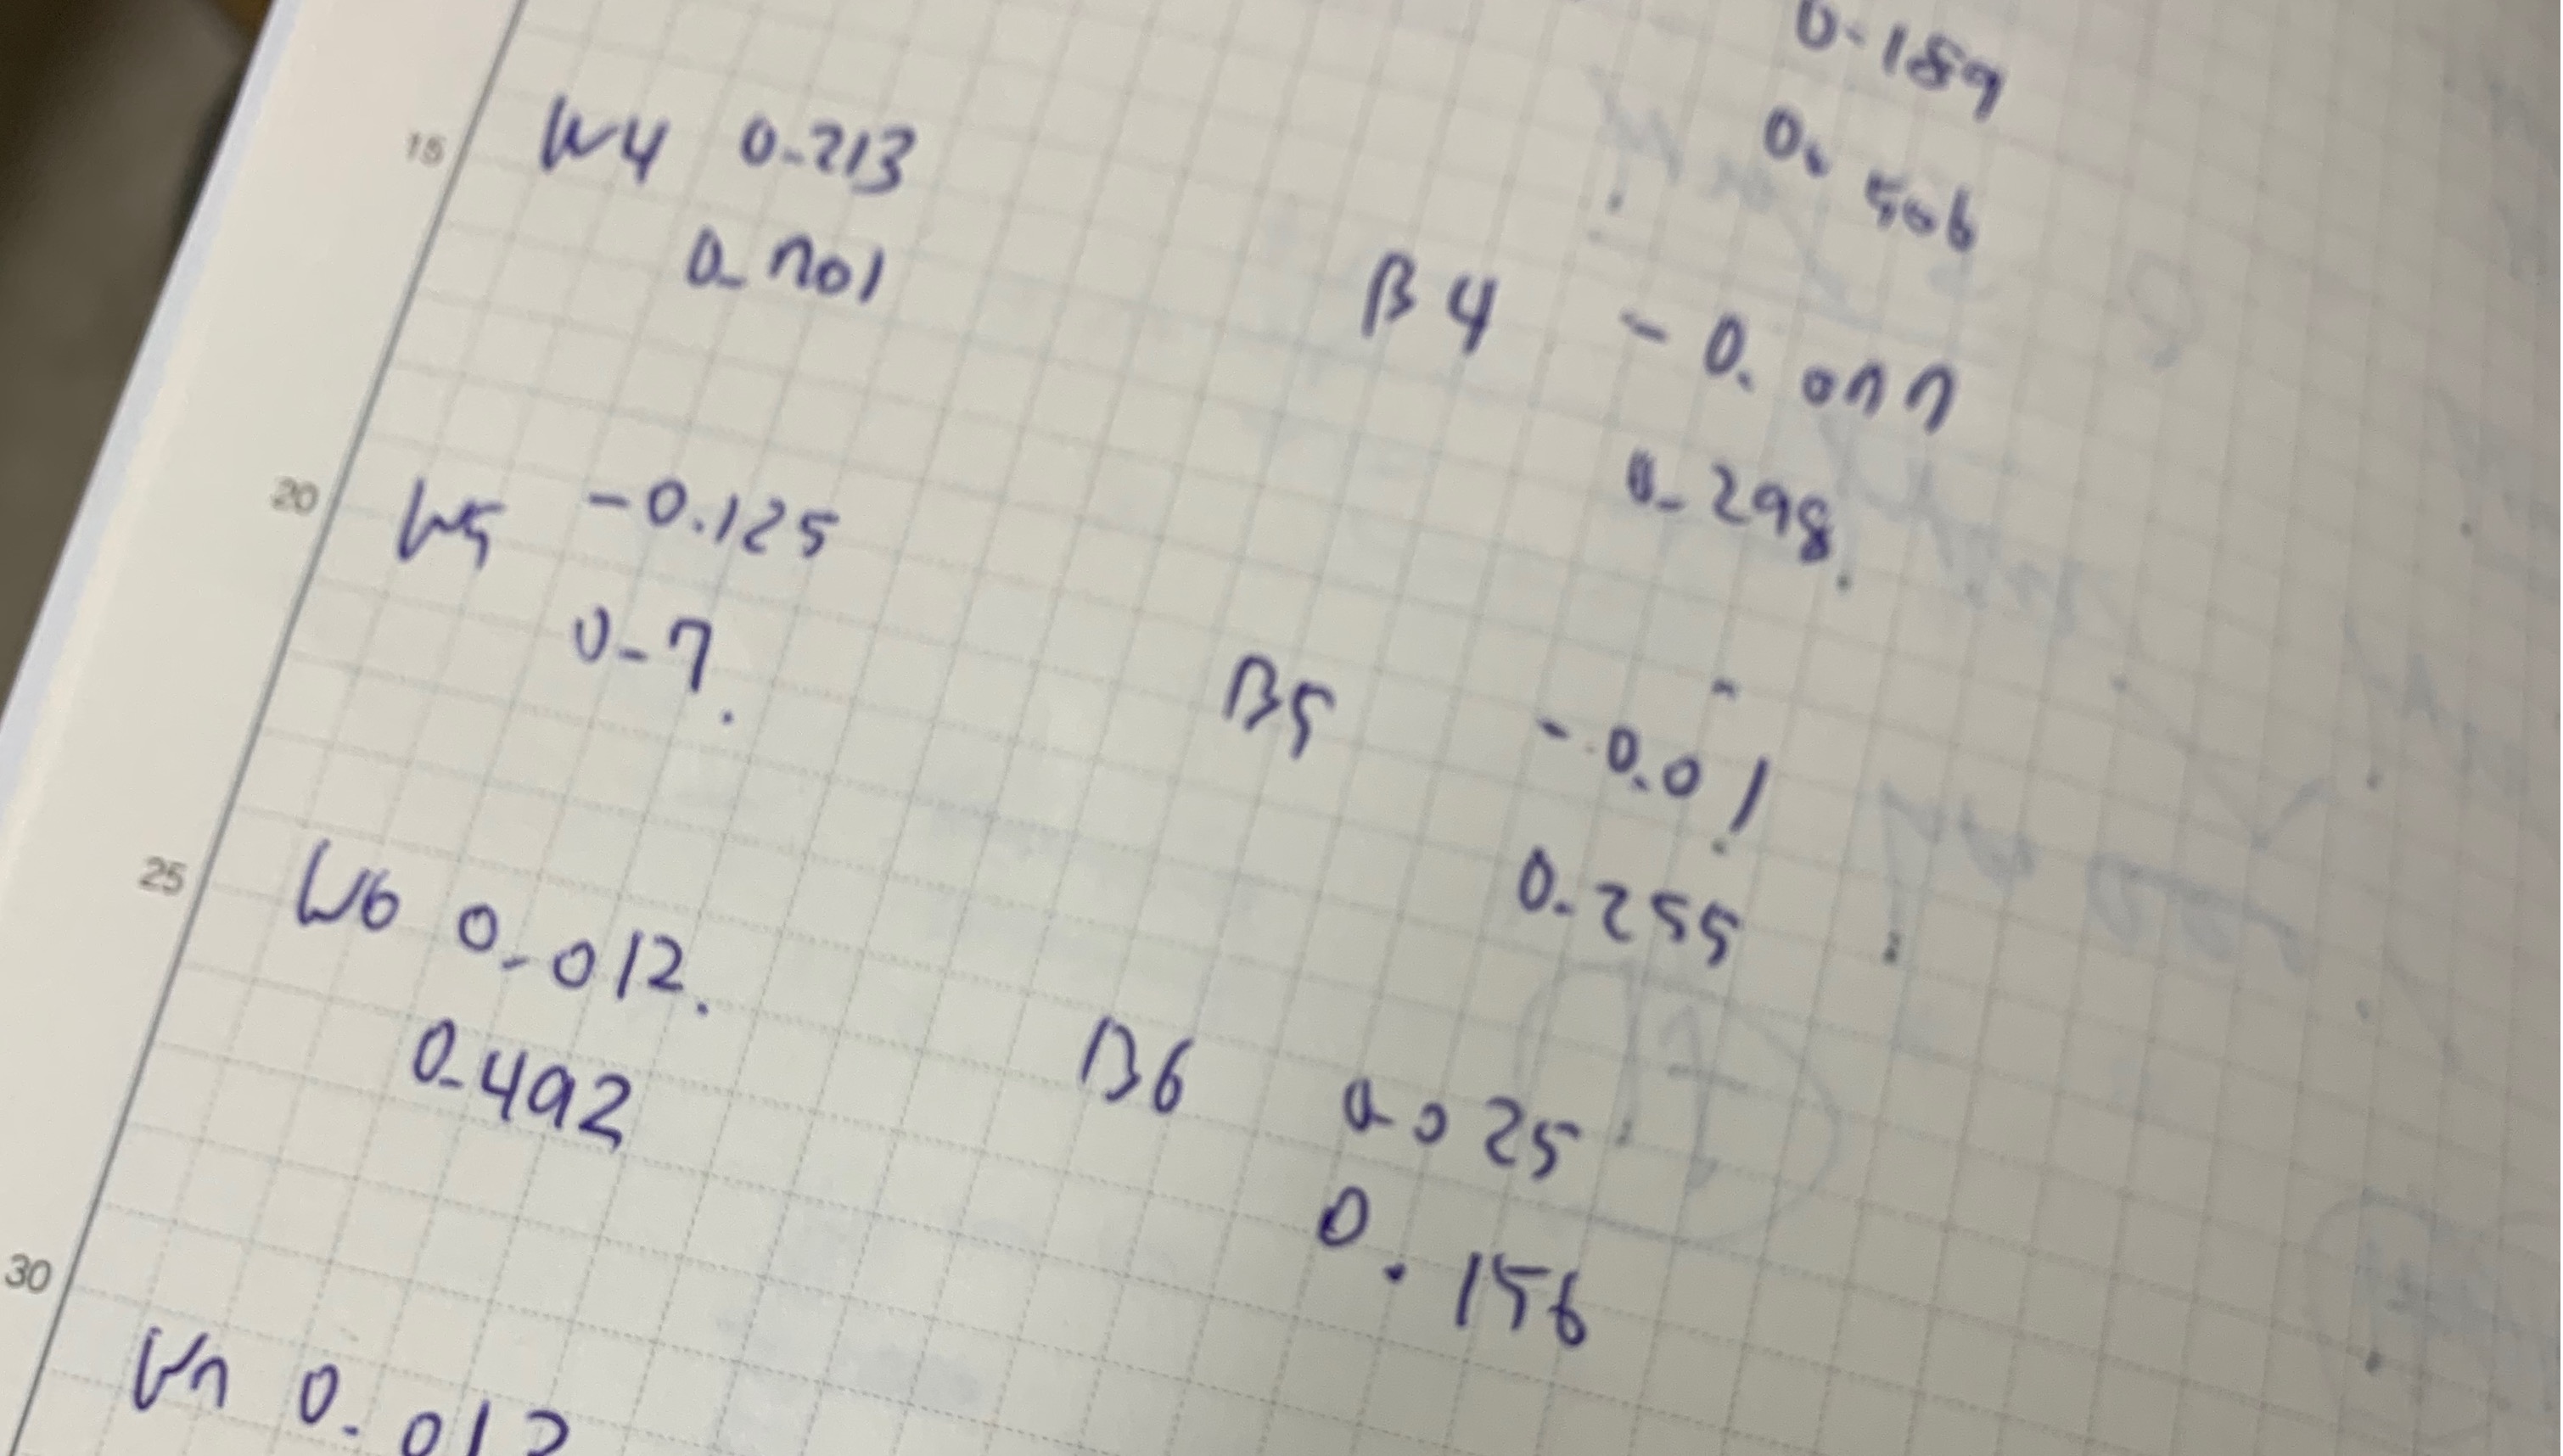 0.189
0.506
15
W4 0.213
0.701
B4 -0.077
0.298.
20
W5 -0.125
0.7.
B5 -0.01
0.255
25
W6 0.012.
0.492
B6 0.025
0.156
30
W7 0.012